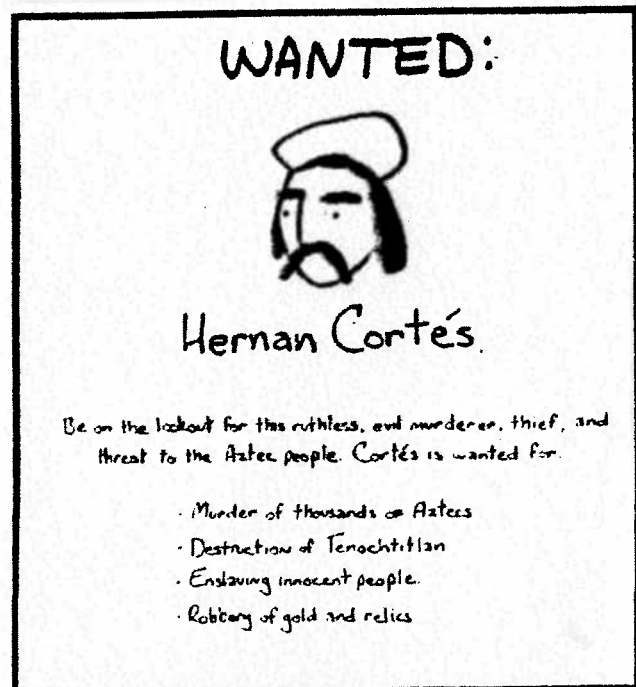 WANTED:
Hernan Cortés.
Be on the lookout for this ruthless, evil murderer, thief, and
threat to the Aztec people. Cortés is wanted for:
· Murder of thousands of Aztecs
· Destruction of Tenochtitlan
· Enslaving innocent people.
· Robbery of gold and relics